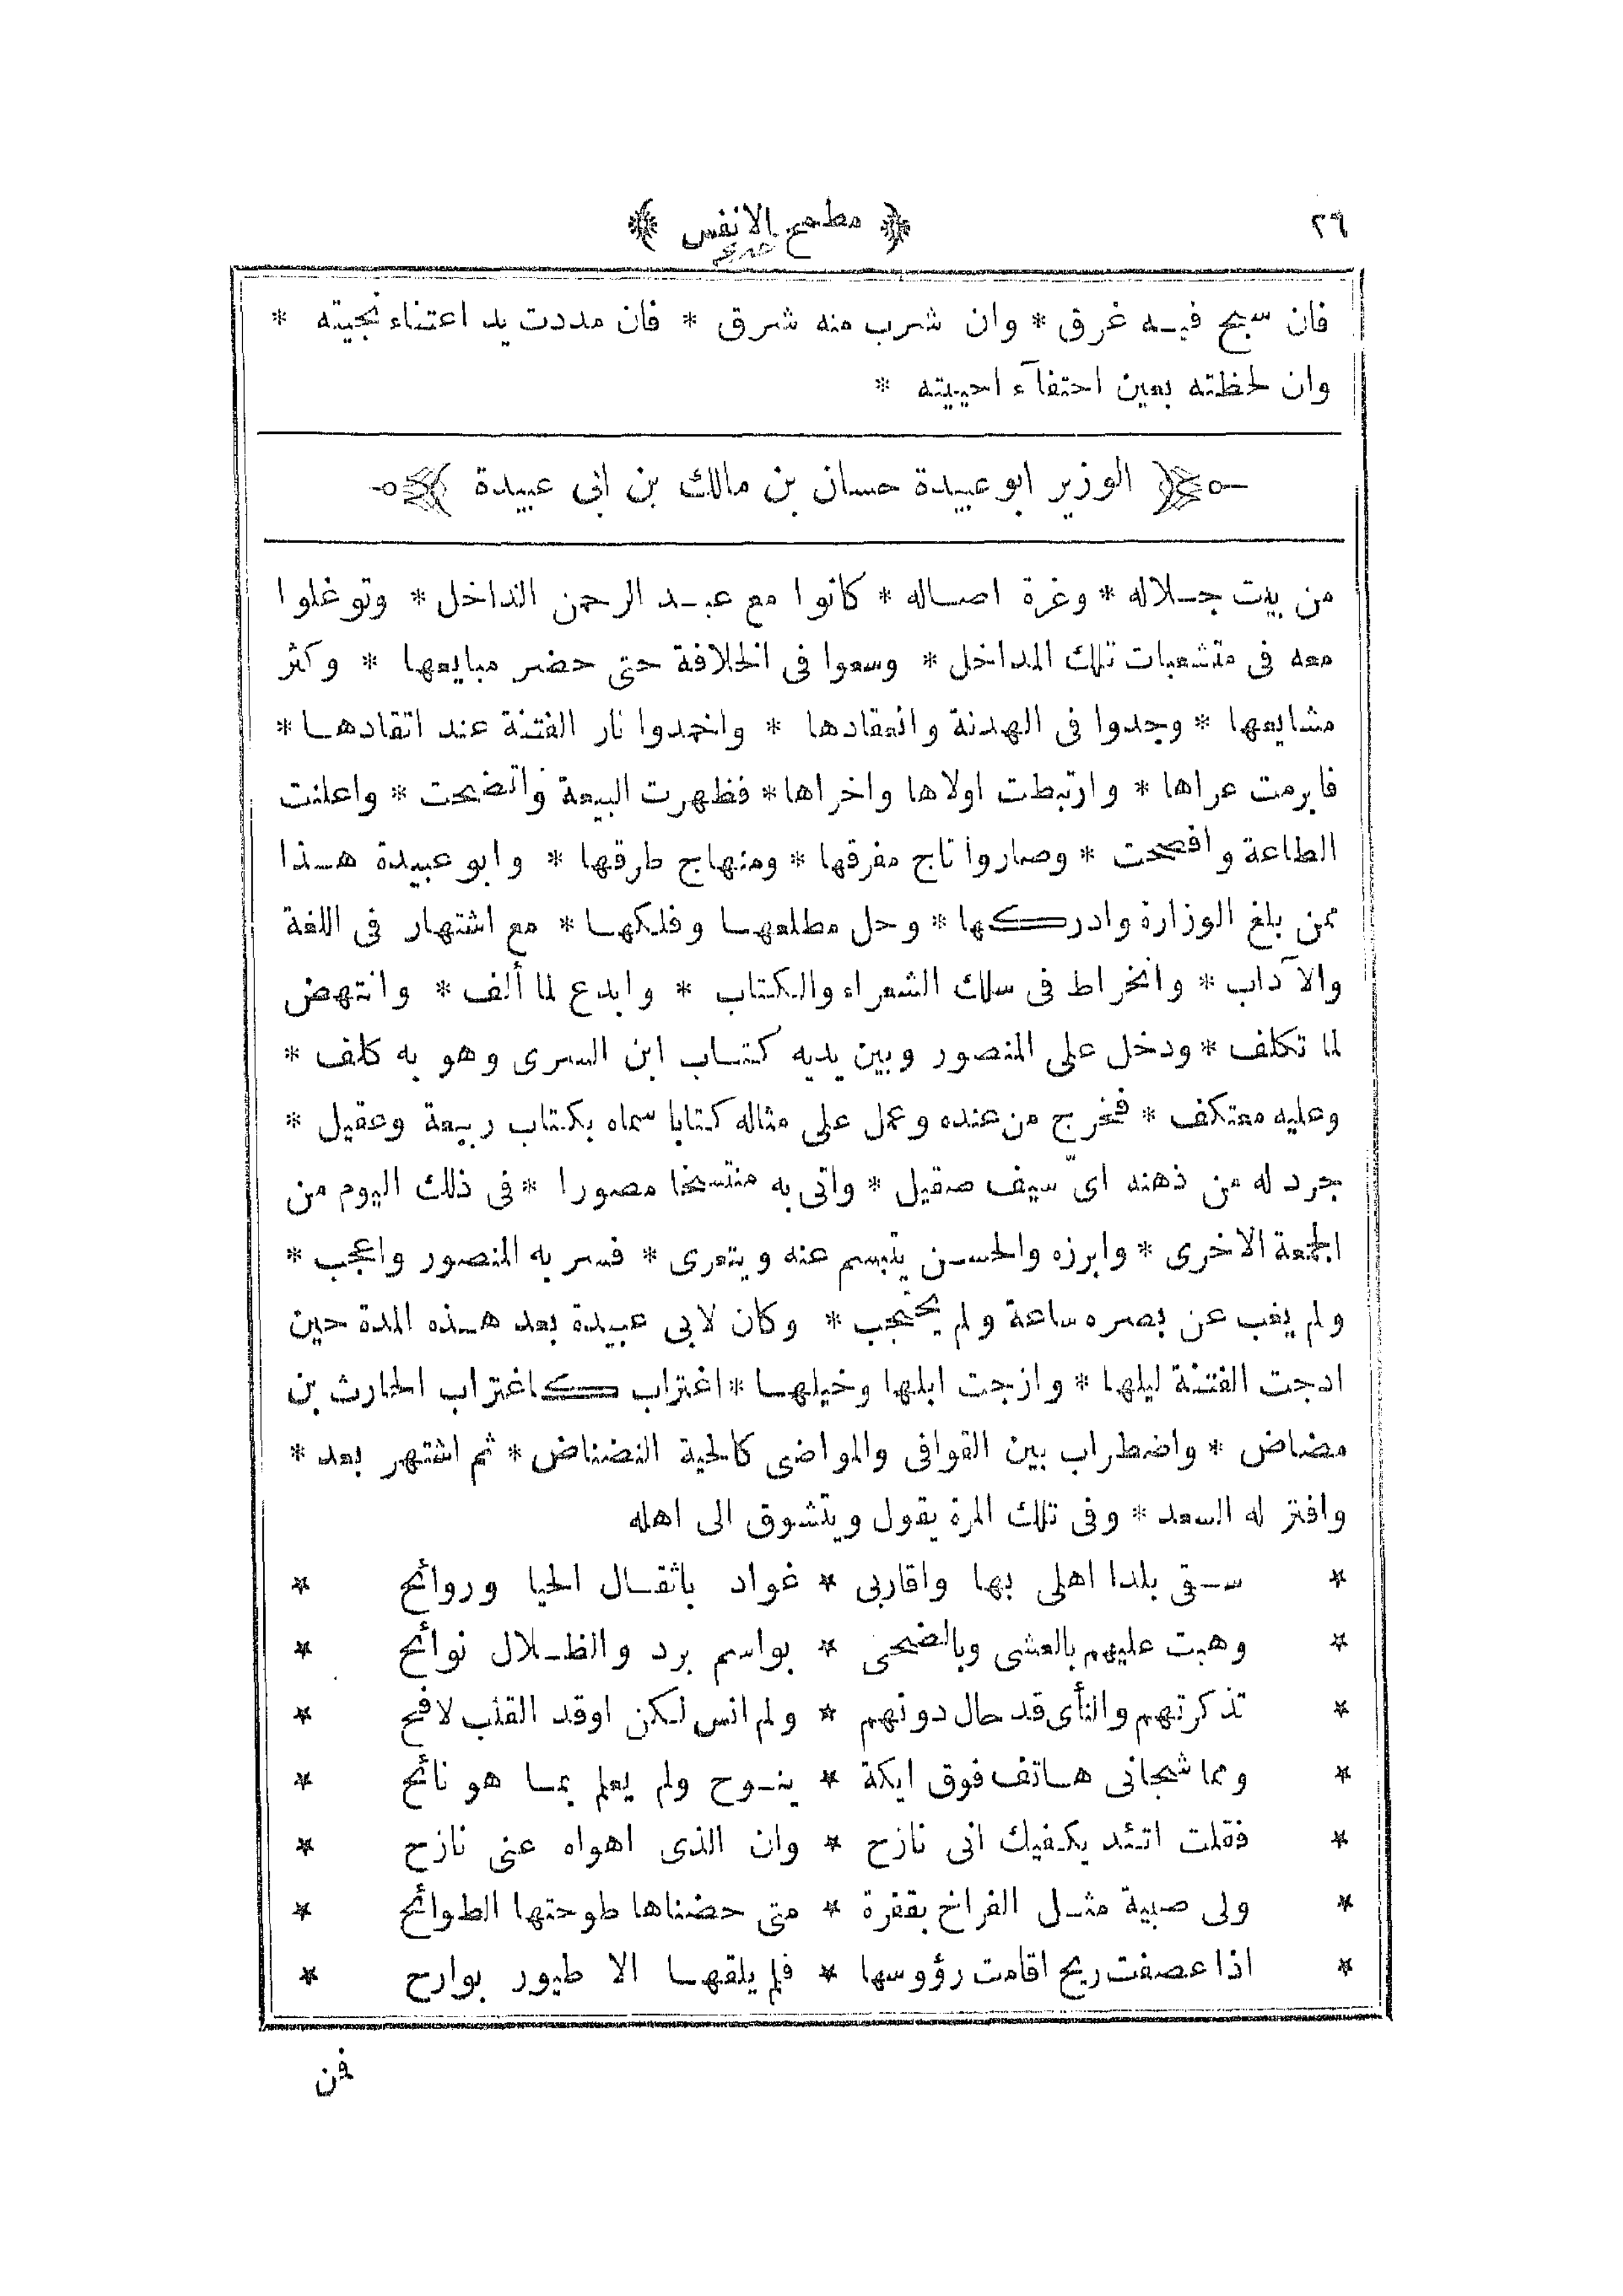 ٢٦
﴿ مطمح الانفس ﴾
فان سبح فيه غرق * وان شرب منه شرق * فان مددت يد اعتناء نجيته *
وان لحظته بعين احتفآء احييته *
﴿ الوزير ابو عبيدة حسان بن مالك بن ابى عبيدة ﴾
من بيت جلاله * وغرة اصاله * كانوا مع عبد الرحمن الداخل * وتوغلوا
معه فى متشعبات تلك المداخل * وسعوا فى الخلافة حتى حضر مبايعها * وكثر
مشايعها * وجدوا فى الهدنة وانعقادها * واخمدوا نار الفتنة عند اتقادها *
فابرمت عراها * وارتبطت اولاها واخراها * فظهرت البيعة واتضحت * واعلنت
الطاعة وافصحت * وصاروا تاج مفرقها * ومنهاج طرقها * وابو عبيدة هذا
ممن بلغ الوزارة وادركها * وحل مطلعها وفلكها * مع اشتهار فى اللغة
والآداب * وانخراط فى سلك الشعراء والكتاب * وابدع لما ألف * وانتهض
لما تكلف * ودخل على المنصور وبين يديه كتاب ابن السرى وهو به كلف *
وعليه معتكف * فخرج من عنده وعمل على مثاله كتابا سماه بكتاب ربيعة وعقيل *
جرد له من ذهنه اىّ سيف صقيل * واتى به منتسخا مصورا * فى ذلك اليوم من
الجمعة الاخرى * وابرزه والحسن يتبسم عنه ويتعرى * فسر به المنصور واعجب *
ولم يغب عن بصره ساعة ولم يحتجب * وكان لابى عبيدة بعد هذه المدة حين
ادجت الفتنة ليلها * وازجت ابلها وخيلها * اغتراب كاغتراب الحارث بن
مضاض * واضطراب بين القوافى والمواضى كالحية النضناض * ثم اشتهر بعد *
وافتر له السعد * وفى تلك المرة يقول ويتشوق الى اهله
* سقى بلدا اهلى بها واقاربى * غواد باثقال الحيا وروائح *
* وهبت عليهم بالعشى وبالضحى * بواسم برد والظلال نوائح *
* تذكرتهم والنأى قد حال دونهم * ولم انس لكن اوقد القلب لافح *
* ومما شجانى هاتف فوق ايكة * ينوح ولم يعلم بما هو نائح *
* فقلت اتئد يكفيك انى نازح * وان الذى اهواه عنى نازح *
* ولى صبية مثل الفراخ بقفرة * متى حضناها طوحتها الطوائح *
* اذا عصفت ريح اقامت رؤوسها * فلم يلقها الا طيور بوارح *
فمن